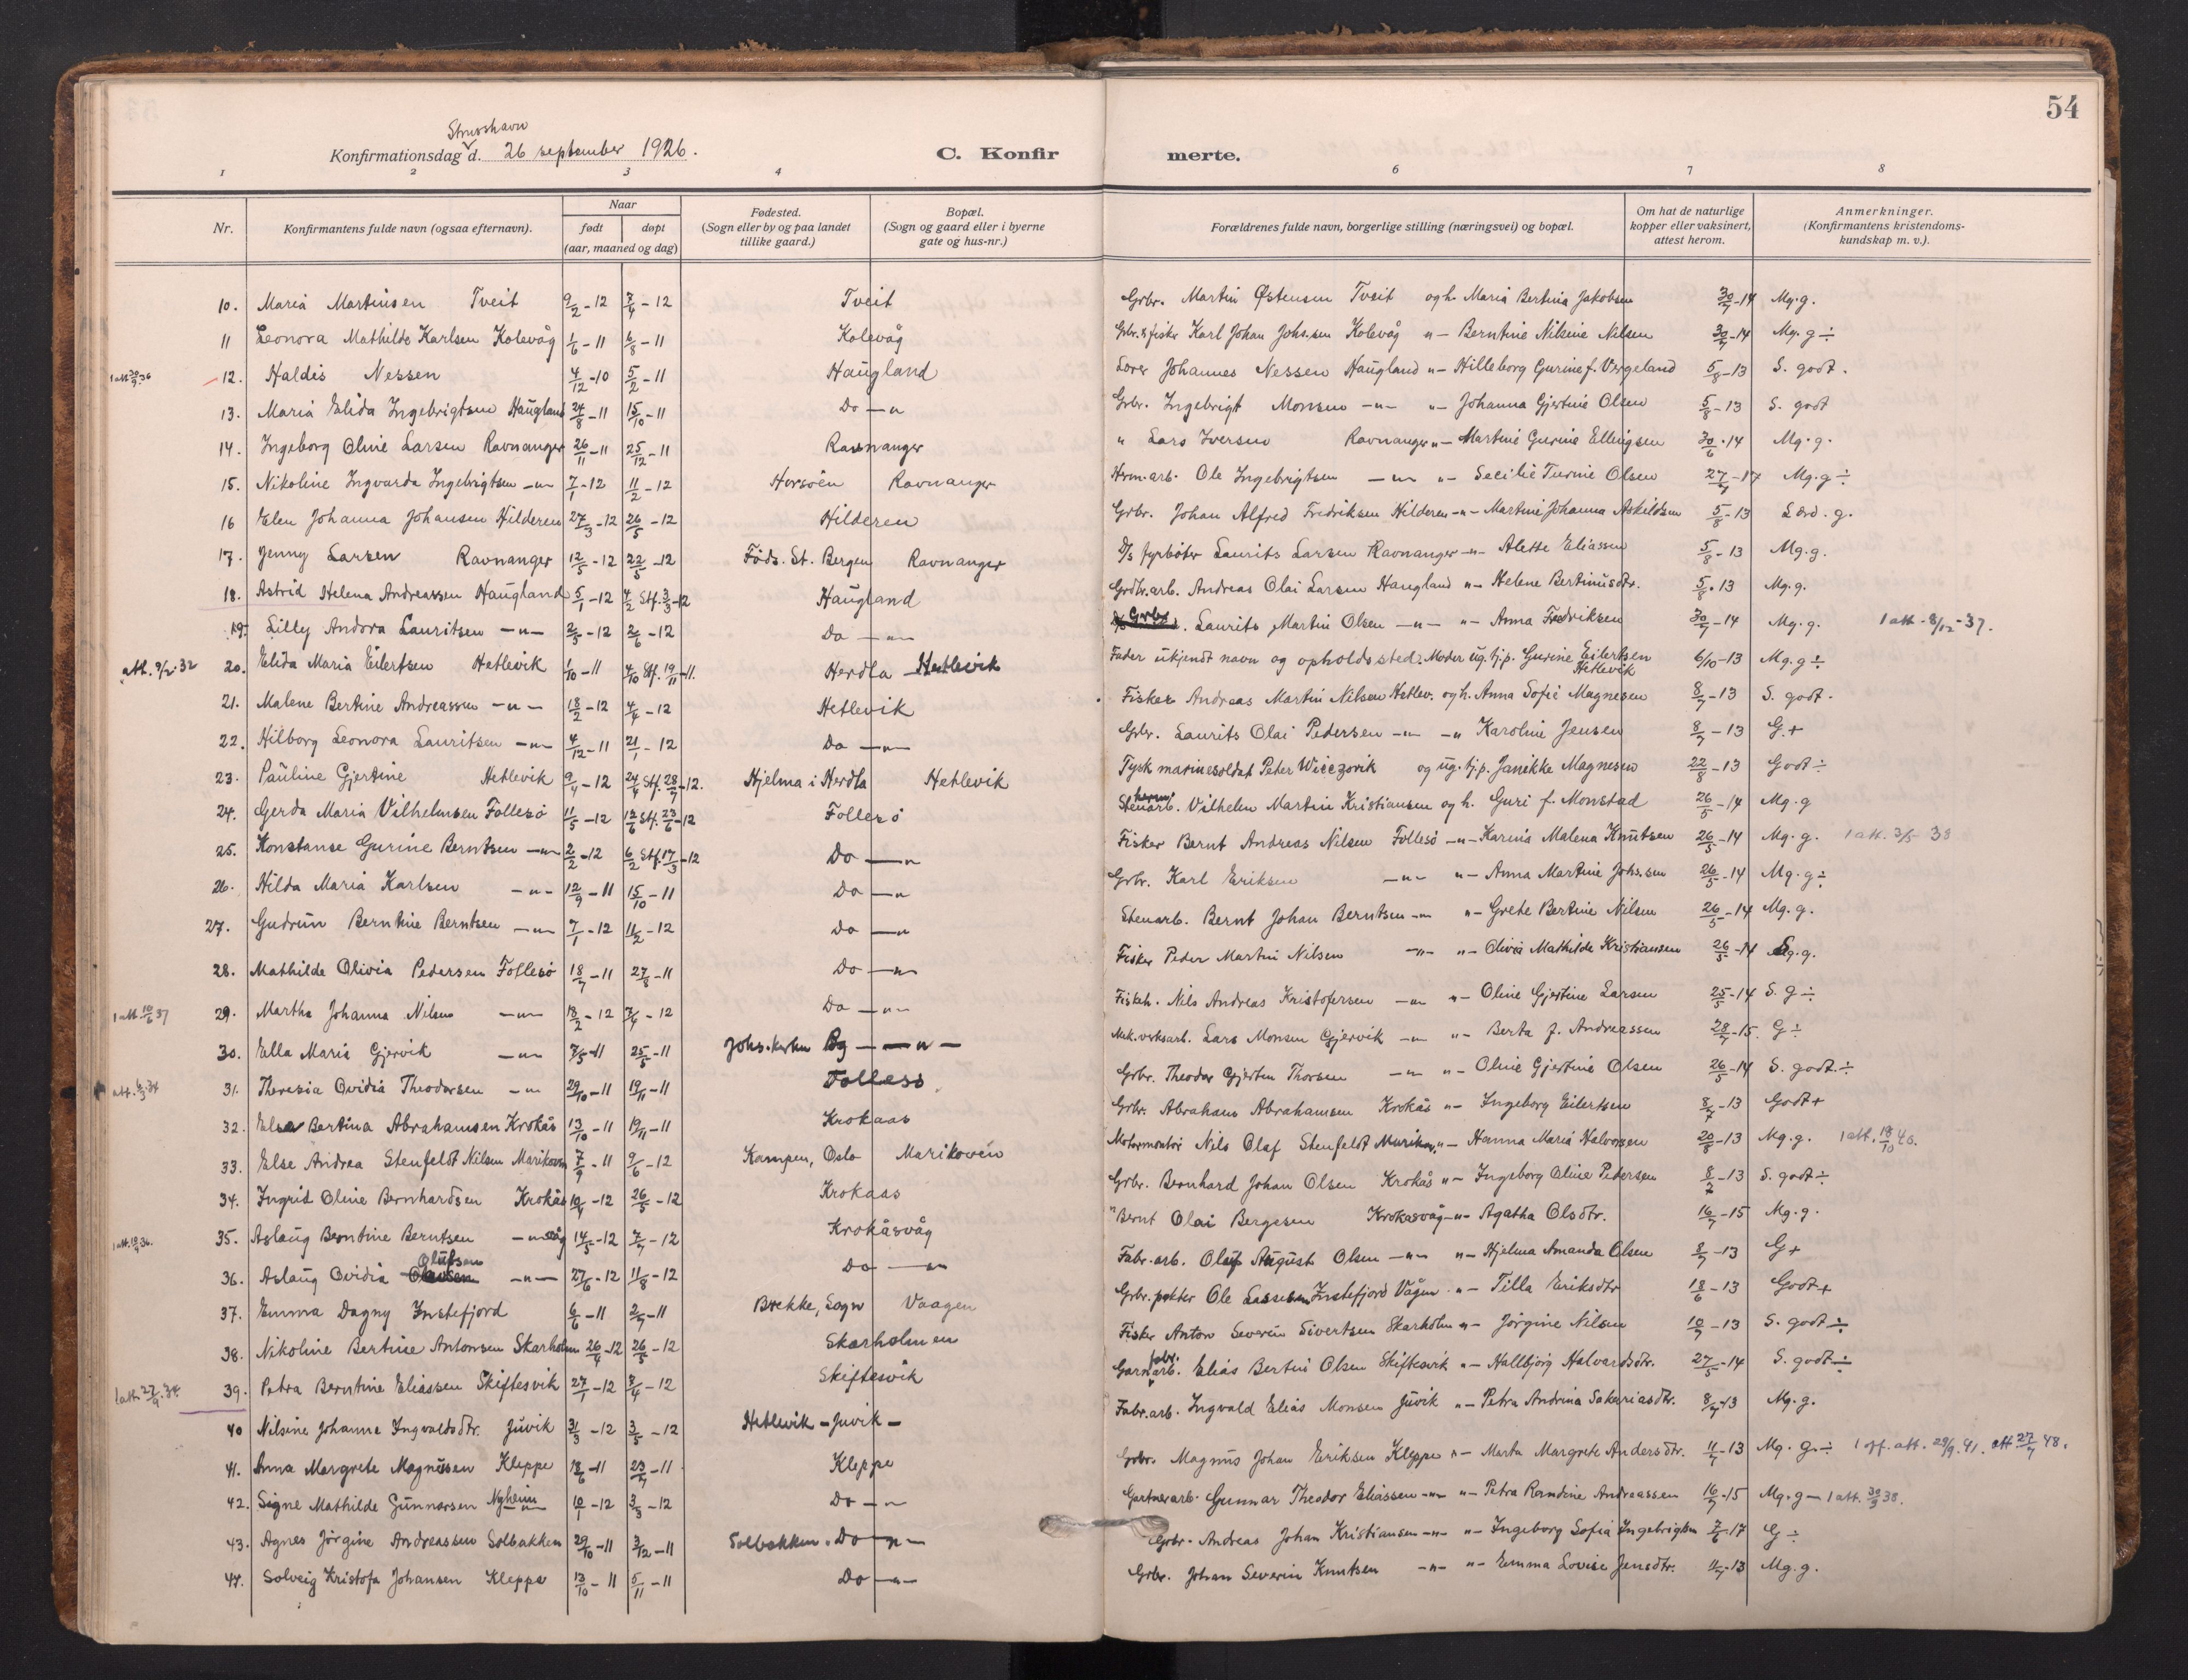 54
Strusshavn
Konfirmationsdag d. 26 september 1926.
C. Konfirmerte.
1 2 3 4 6 7 8
Nr. Konfirmantens fulde navn (ogsaa efternavn). Naar født døpt (aar, maaned og dag) Fødested. (Sogn eller by og paa landet tillike gaard.) Bopæl. (Sogn og gaard eller i byerne gate og hus-nr.) Forældrenes fulde navn, borgerlige stilling (næringsvei) og bopæl. Om hat de naturlige kopper eller vaksinert, attest herom. Anmerkninger. (Konfirmantens kristendomskundskap m. v.).
10. Maria Martinsen Tveit 9/2-12 7/4-12 Tveit Grbr. Martin Østensen Tveit og h. Maria Bertina Jakobsen 30/7-14 Mg.g.
11 Leonora Mathilde Karlsen Kolevåg 1/6-11 6/8-11 Kolevåg Grbr. & fisker Karl Johan Johs.sen Kolevåg "- Berntine Nilsine Nilsen 30/7-14 Mg.g÷
1 att 30/9.36 12. Haldis Nessen 4/12-10 5/2-11 Haugland Lærer Johannes Nessen Haugland "- Hilleborg Gurine f. Vergeland 5/8-13 S. godt.
13. Maria Elida Ingebrigtsen Haugland 24/8-11 15/10-11 Do -"- Grbr. Ingebrigt Monsen -"- "- Johanna Gjertine Olsen 5/8-13 S. godt
14. Ingeborg Oline Larsen Ravnanger 26/11-11 25/12-11 Ravnanger " Lars Iversen Ravnanger "- Martine Gurine Ellingsen 30/6-14 Mg.g.
15. Nikoline Ingvarda Ingebrigtsen -"- 7/1-12 11/2-12 Horsøen Ravnanger Herm.arb. Ole Ingebrigtsen -"- "- Secilie Turine Olsen 27/7-17 Mg.g÷
16 Elen Johanna Johansen Hilderen 27/3-12 26/5-12 Hilderen Grbr. Johan Alfred Fredriksen Hilderen -"- Martine Johanna Askildsen 5/8-13 Særd. g.
17. Jenny Larsen Ravnanger 12/5-12 22/5-12 Føds. St. Bergen Ravnanger D/s fyrbøter Laurits Larsen Ravnanger -"- Alette Eliassen 5/8-13 Mg.g.
18. Astrid Helena Andreassen Haugland 5/1-12 4/2 Stf. 3/3-12 Haugland Grdbr.arb. Andreas Olai Larsen Haugland "- Helene Bertinusdtr. 5/8-13 Mg.g.
19. Lilly Andora Lauritsen -"- 2/5-12 2/6-12 Do -"- Grbr. Laurits Martin Olsen -"- "- Anna Fredriksen 30/7-14 Mg.g. 1 att. 8/12-37.
att. 9/2.32 20. Elida Maria Eilertsen Hetlevik 1/10-11 4/10 Stf. 19/11-11. Herdla Hetlevik Fader ukjendt navn og opholdssted. Moder ug. tj.p. Gurine Eilertsen Hetlevik 6/10-13 Mg.g÷
21. Malene Bertine Andreassen -"- 18/2-12 4/4-12 Hetlevik Fisker Andreas Martin Nilsen Hetlev. og h. Anna Sofie Magnesen 8/7-13 S. godt.
22. Hilborg Leonora Lauritsen -"- 4/12-11 21/1-12 Do -"- Grbr. Laurits Olai Pedersen -"- -"- Karoline Jensen 8/7-13 G.+
23. Pauline Gjertine Hetlevik 9/4-12 24/4 Stf. 28/7-12. Hjelma i Herdla Hetlevik Tysk marinesoldat Peter Wieczorik og ug. tj.p. Janikke Magnesen 22/8-13 Godt÷
24. Gerda Maria Vilhelmsen Follesø 11/5-12 12/6 Stf. 23/6-12 Follesø Stenarb. Vilhelm Martin Kristiansen og h. Guri f. Monstad 26/5-14 Mg.g
25. Konstanse Gurine Berntsen -"- 2/2-12 6/2 Stf. 17/3-12 Do -"- Fisker Bernt Andreas Nilsen Follesø -"- Karina Malena Knutsen 26/5-14 Mg.g. 1 att. 3/5 38
26. Hilda Maria Karlsen -"- 12/9-11 15/10-11 Do -"- Grbr. Karl Eriksen -"- "- Anna Martine Johs.sen 26/5-14 Mg.g÷
27. Gudrun Berntine Berntsen -"- 7/1-12 11/2-12 Do -"- Stenarb. Bernt Johan Berntsen -"- "- Grete Bertine Nilsen 26/5-14 Mg.g.
28. Mathilde Olivia Pedersen Follesø 18/7-11 27/8-11 Do -"- Fisker Peder Martin Nilsen -"- "- Olivia Mathilde Kristiansen 26/5-14 g.
1 att 10/6 37 29. Martha Johanna Nilsen -"- 18/2-12 7/4-12 Do -"- Fiskeh. Nils Andreas Kristofersen -"- "- Oline Gjertine Larsen 25/5-14 S. g÷
30. Ella Maria Gjervik -"- 7/5-11 25/5-11 Johs.kirken Bg -"- Mek.verksarb. Lars Monsen Gjervik -"- "- Berta f. Andreassen 28/7-15. G÷
att. 6/3.34 31. Theresia Ovidia Theodorsen -"- 29/10-11 19/11-11 Follesø Grbr. Theodor Gjerten Thorsen -"- "- Oline Gjertine Olsen 26/5-14 S. godt.÷
32. Elsa Bertina Abrahamsen Krokås 13/10-11 19/11-11 Krokaas Grbr. Abraham Abrahamsen Krokås "- Ingeborg Eilertsen 8/7-13 Godt+
33. Else Andrea Stenfeldt Nilsen Marikoven 7/9-11 9/6-12 Kampen, Oslo Marikoven Motormontør Nils Olaf Stenfeldt Marikov. "- Hanna Maria Halvorsen 20/8-13 Mg.g. 1 att. 18/10 40.
34. Ingrid Oline Bernhardsen Krokås 19/4-12 26/5-12 Krokaas Grbr. Bernhard Johan Olsen Krokås "- Ingeborg Oline Pedersen 8/7-13 S. godt÷
1 att. 18/9 36. 35. Aslaug Berntine Berntsen -"- våg 14/5-12 7/7-12 Krokåsvåg " Bernt Olai Bergesen Krokåsvåg -"- Agatha Olsdtr. 16/7-15 Mg.g.
36. Aslaug Ovidia Olufsen -"- 27/6-12 11/8-12 Do -"- Fabr.arb. Oluf August Olsen -"- "- Hjelma Amanda Olsen 8/7-13 G+
37. Emma Dagny Instefjord 6/6-11 2/7-11 Brekke, Sogn Vaagen Grbr. pakter Ole Lassesen Instefjord Vågen "- Tilla Eriksdtr 18/6-13 Godt+
38. Nikoline Bertine Antonsen Skarholm 26/4-12 26/5-12 Skarholmen Fisker Anton Severin Sivertsen Skarholm "- Jørgine Nilsen 10/7-13 S. godt÷
1 att 27/9.34. 39. Petra Berntine Eliassen Skiftesvik 27/1-12 8/4-12 Skiftesvik Garnfabr.arb. Elias Bertin Olsen Skiftesvik "- Hallbjørg Halvardsdtr. 27/5-14 S. godt÷
40 Nilsine Johanne Ingvaldsdtr. Juvik 31/3-12 3/5-12 Hetlevik - Juvik - Fabr.arb. Ingvald Elias Monsen Juvik "- Petra Andrina Sakariasdtr. 8/7-13 Mg.g.
41. Anna Margrete Magnusen Kleppe 18/6-11 23/7-11 Kleppe Grbr. Magnus Johan Eriksen Kleppe "- Marta Margrete Andersdtr. 11/7-13 Mg.g.÷ 1 off. att. 29/9.41. att 27/7 48.
42. Signe Mathilde Gunnarsen Nyheim 10/1-12 3/3-12 Do -"- Gartnerarb. Gunnar Theodor Eliassen -"- "- Petra Randine Andreassen 16/7-15 Mg.g - 1 att. 30/3 38.
43. Agnes Jørgine Andreassen Solbakken 29/10-11 3/12-11 Solbakken. Do -"- Grbr. Andreas Johan Kristiansen -"- "- Ingeborg Sofia Ingebrigtsen 7/6-17 G÷
44. Solveig Kristofa Johansen Kleppe 13/10-11 5/11-11 Do -"- Grbr. Johan Severin Knutsen -"- "- Emma Lovise Jensdtr. 11/7-13 Mg.g.